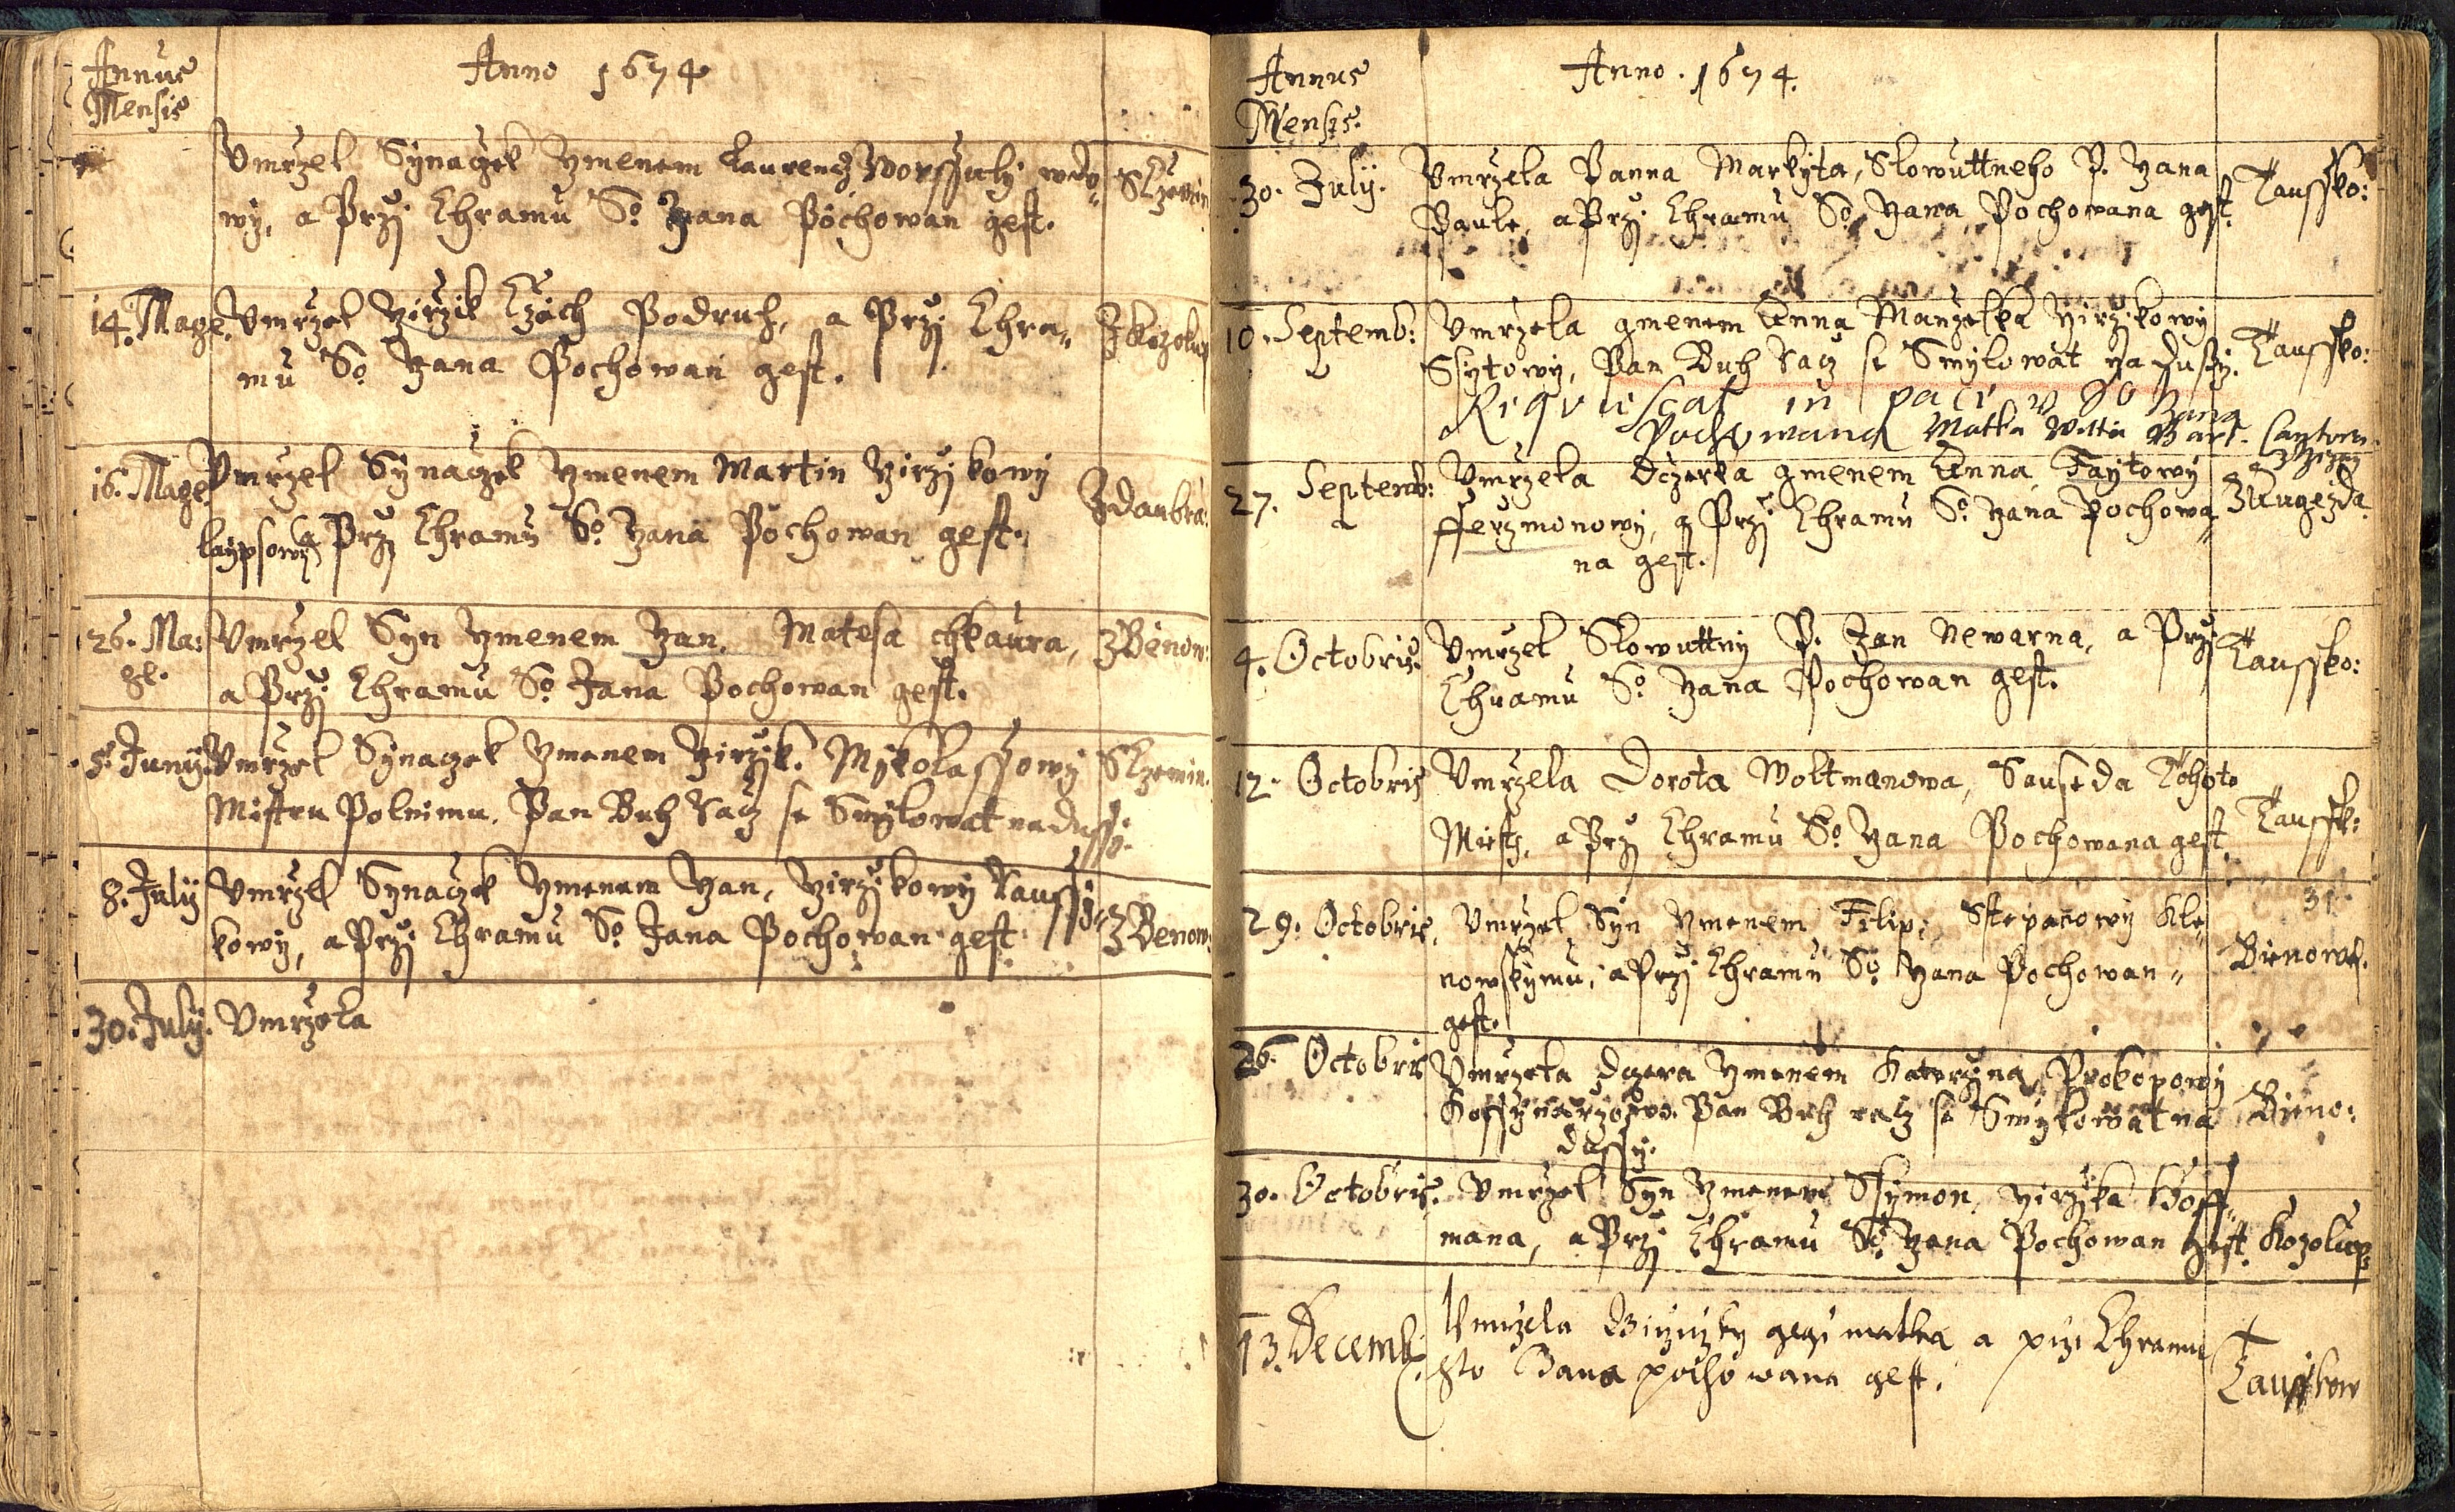 Annus
Mensis
Anno 1674
Vmrzel Synaczek Ymenem Laurencz Worssuly wdo=
wy, a Przj Chramu So. Yana Pochowan gest.
Slzemin
14. Mage. Vmrzel Yirzik Czäch Podruh, a Przj Chra=
mu So. Yana Pochowan gest.
Z Kozolup
16. Mage Vmrzel Synaczek Ymenem Martin Yirzjkowy
a Przj Chramu So. Yana Pochowan gest.
Zdaubra:
26. Ma: Vmrzel Syn Ymenem Yan, Matesa chkaura,
a Przj Chramu So. Jana Pochowan gest.
Z Benow:
5. Juny. Vmrzel Synaczek Ymenem Yirzjk. Mykolassowy
Mistru Polnimu. Pan Buh racz se Smylowat na dussy.
Slzemin.
8. July Vmrzel Synaczek Ymenem Yan, Yirzjkowy Kaussy=
kowy, a Przj Chramu So. Jana Pochowan gest.
Z Benow:
30. July. Vmrzela
Annus
Mensis.
Anno. 1674.
30. July. Vmrzela Panna Markyta, Slowuttneho P. Yana
Paule, a Przj Chramu So. Yana Pochowana gest.
Taussko:
10. Septemb: Vmrzela gmenem Anna Manzelka Yirzjkowy
Ssytowy, Pan Buh racz se Smylowat na dussy.
Taussko:
Requiescat in pace v So Jana
Pochowana Matka
27. Septemb: Vmrzela Dczerka gmenem Anna Faytowy
fferzmonowy, a Przj Chramu So. Yana Pochowa=
na gest.
Z Augezda
4. Octobris. Vmrzel Slowuttny P. Jan Newarna, a Przj
Chramu So. Yana Pochowan gest.
Taussko:
12. Octobris Vmrzela Dorota Woltmanowa, Sauseda Tohoto
Miesta, a Przj Chramu So. Yana Pochowana gest.
Taussk:
29. Octobris. Vmrzel Syn Ymenem Filip, Sstepanowy Kle=
nowskymu, a Przj Chramu So. Yana Pochowan=
gest.
Bienows.
26. Octobris Vmrzela Dczera Ymenem Katerzyna, Prokopowy
Pan Buh racz se Smylowat na
dussy.
Bieno:
30. Octobris. Vmrzel Syn Ymenem Ssymon, Yirzjka Hoff=
mana, a Przj Chramu So. Yana Pochowan gest.
Kozolup
13. Decemb. Vmrzela gegi matka a przi Chramu
Sto Jana pochowana gest.
Tausskow